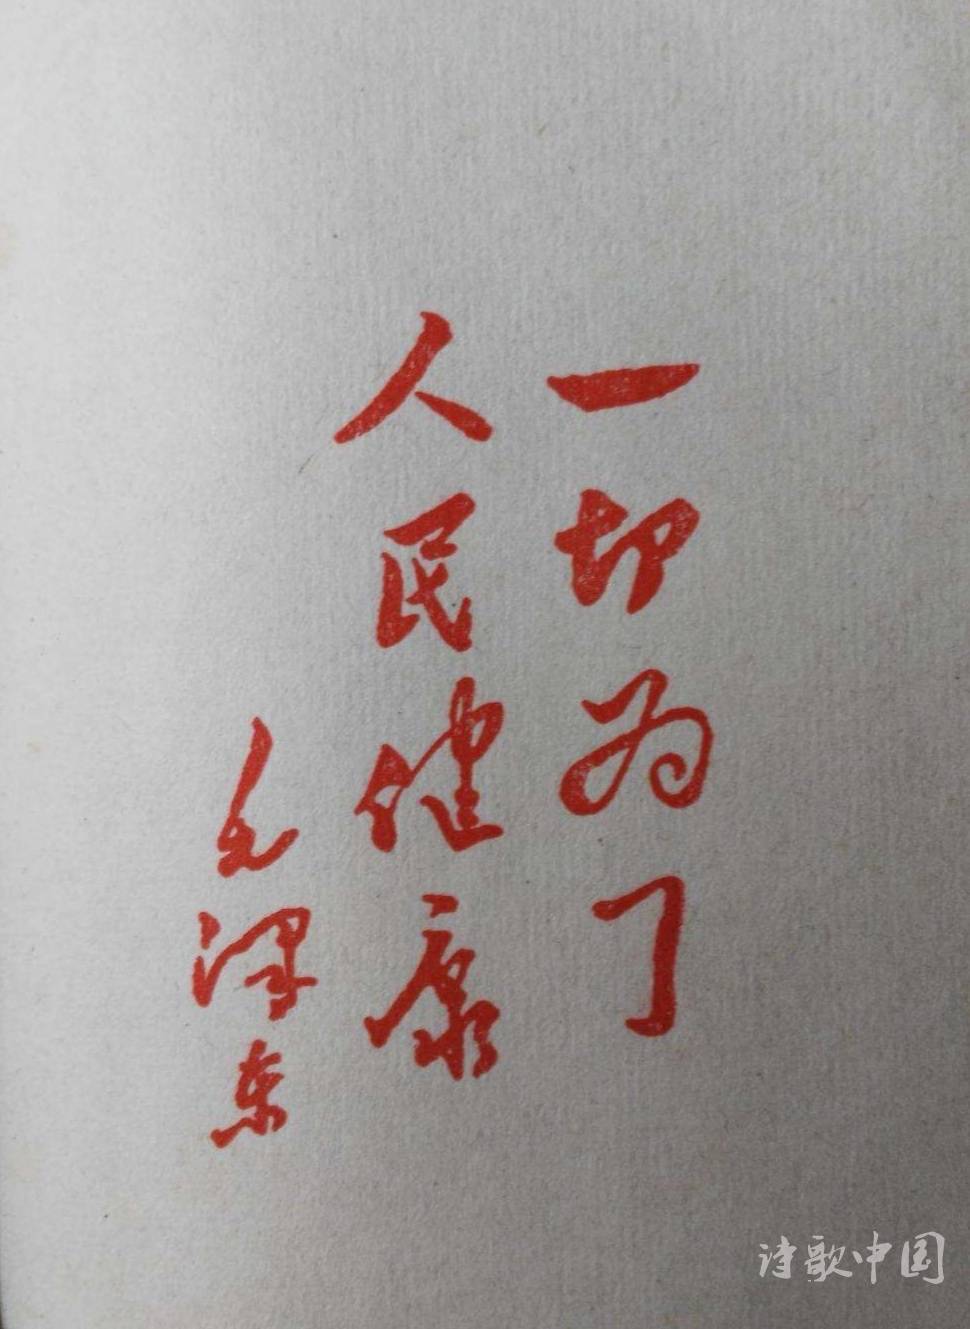 一切为了
人民健康
毛泽东
诗歌中国